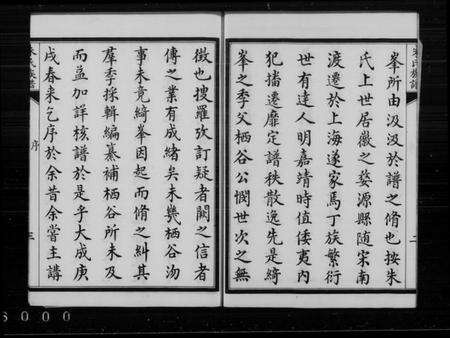 峯所由汲汲於譜之脩也按朱
氏上世居徽之婺源縣隨宋南
渡遷於上海遂家焉丁族繁衍
世有達人明嘉靖時值倭夷內
犯播遷靡定譜秩散逸先是綺
峯之季父栖谷公憫世次之無
二
徵也搜羅攷訂疑者闕之信者
傳之業有成緒矣未幾栖谷沕
事未竟綺峯因起而脩之糾其
羣季採輯編纂補栖谷所未及
而益加詳核譜於是乎大成庚
戌春來乞序於余昔余嘗主講
序
三
6000